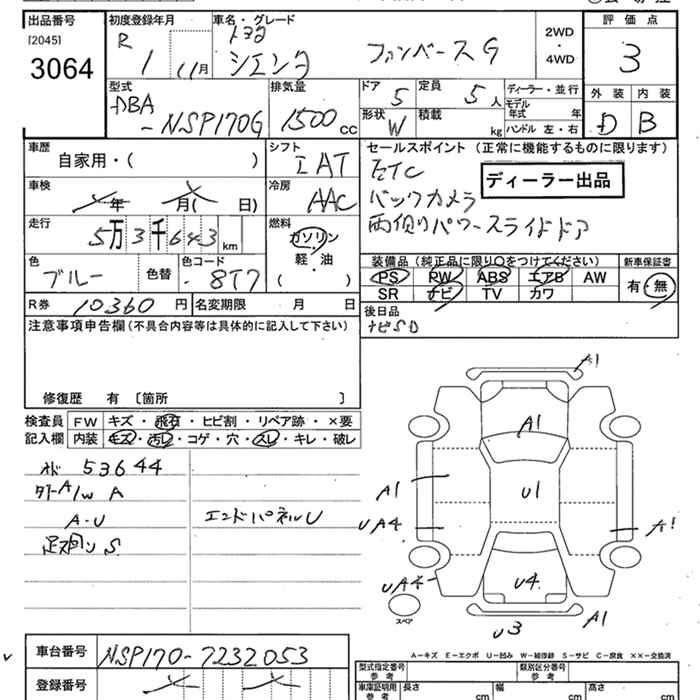 出品番号 初度登録年月 車名・グレード 評価点
[2045] R トヨタ 2WD
3064 1 11月 シエンタ ファンベースG ・4WD 3
型式 排気量 ドア 定員 ディーラー・並行 外装 内装
DBA 5 5人 モデル年式 年
-NSP170G 1500cc 形状 W 積載 kg ハンドル 左・右 D B
車歴 シフト セールスポイント (正常に機能するものに限ります)
自家用・( ) IAT ETC
車検 年 月( 日) 冷房 AAC バックカメラ ディーラー出品
走行 燃料 両側パワースライドドア
5万3千643km ガソリン
軽・油
( )
装備品(純正品に限り○をつけてください) 新車保証書
色 ブルー 色替 色コード 8T7 PS PW ABS エアB AW 有・無
SR ナビ TV カワ
R券 10360円 名変期限 月 日 後日品
注意事項申告欄(不具合内容等は具体的に記入して下さい) ナビSD
修復歴 有 〔箇所 〕
検査員 FW キズ・飛石・ヒビ割・リペア跡・×要
記入欄 内装 キズ・汚レ・コゲ・穴・スレ・キレ・破レ
A1
A1
オド 53644
A/W A
A1 U1
A・U エンドパネルU
UA4 A1
足廻りS
UA4 U4
スペア
U3 A1
A-キズ E-エクボ U-凹み W-補修跡 S-サビ C-腐食 ××-交換済
車台番号 NSP170-7232053
型式指定番号 参考 類別区分番号 参考
登録番号
車庫証明用 参考 長さ cm 幅 cm 高さ cm